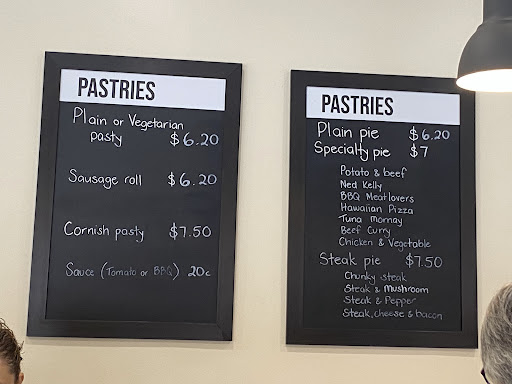 PASTRIES
Plain or Vegetarian
pasty $6.20
Sausage roll $6.20
Cornish pasty $7.50
Sauce (Tomato or BBQ) 20c
PASTRIES
Plain pie $6.20
Specialty pie $7
Potato & beef
Ned Kelly
BBQ Meatlovers
Hawaiian Pizza
Tuna Mornay
Beef Curry
Chicken & Vegetable
Steak pie $7.50
Chunky steak
Steak & Mushroom
Steak & Pepper
Steak, cheese & bacon